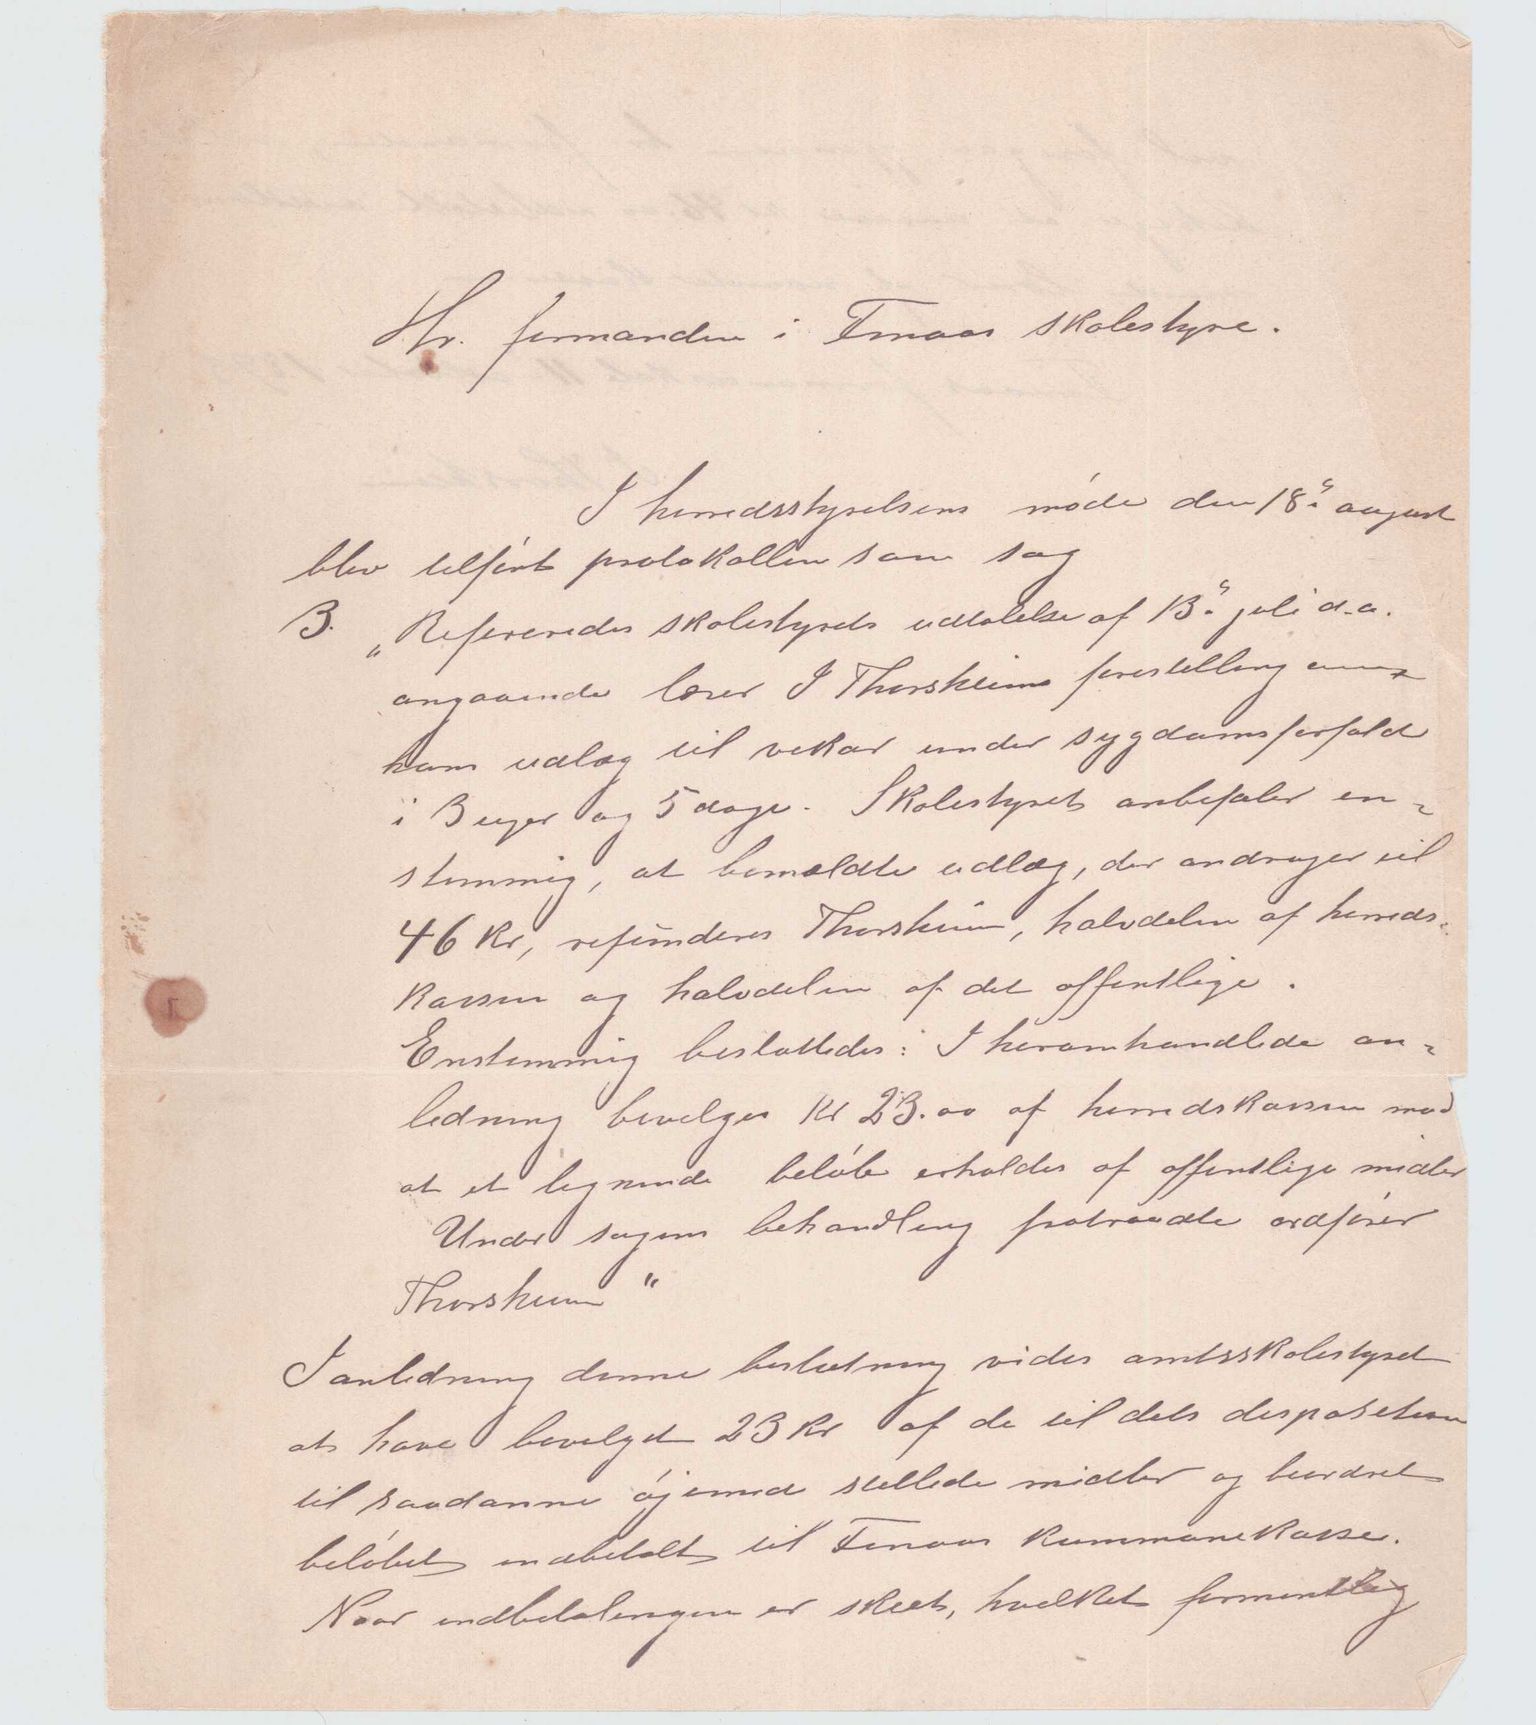 Hr. formanden i Finaas skolestyre.
I herredsstyrelsens møde den 18de august
blev tilført protokollen som sag
3. „Refereredes skolestyrets udtalelse af 13de juli d.a.
angaaende lærer I Thorsheims forestilling om
hans udlæg til vikar under sygdomsforfald
i 3 uger og 5 dage. Skolestyret anbefaler en-
stemmig, at bemeldte udlæg, der andrager til
46 kr, refunderes Thorsheim, halvdelen af herreds-
kassen og halvdelen af det offentlige.
Enstemmig besluttedes: I heromhandlede an-
ledning bevilges kr 23.00 af herredskassen mod
at et lignende beløb erholdes af offentlige midler
Under sagens behandling fratraadte ordfører
Thorsheim"
I anledning denne beslutning vides amtsskolestyret
at have bevilget 23 kr af de til dets disposition
til saadanne øjemed stillede midler og beordret
beløbet indbetalt til Finaas kommunekasse.
Naar indbetalingen er skeet, hvilket formentlig